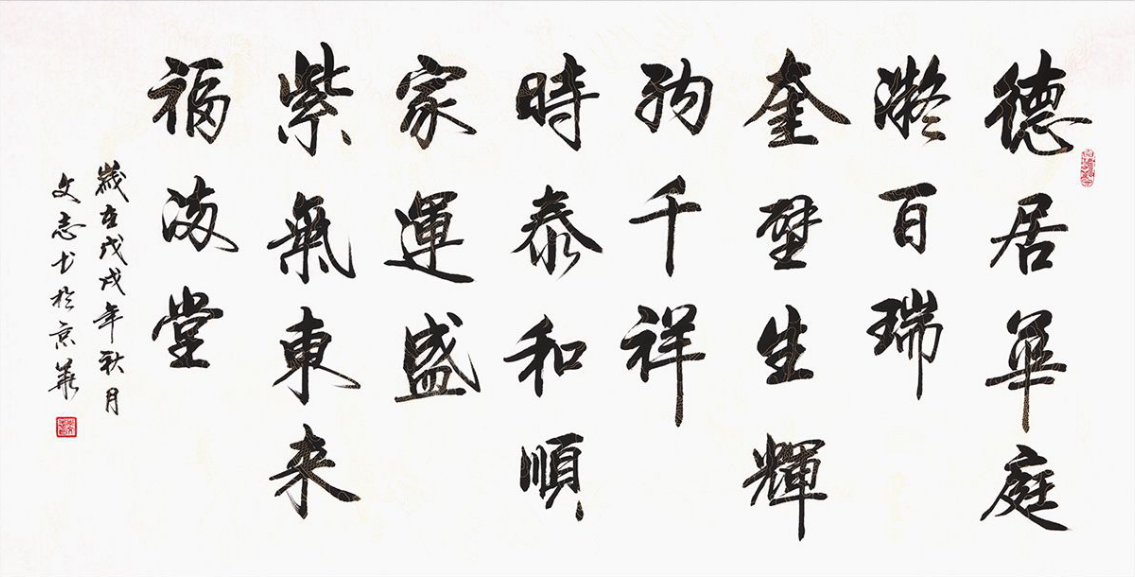 德居華庭
凝百瑞
奎壁生輝
納千祥
時泰和順
家運盛
紫氣東来
福满堂
歲在戊戌年秋月
文志书於京華